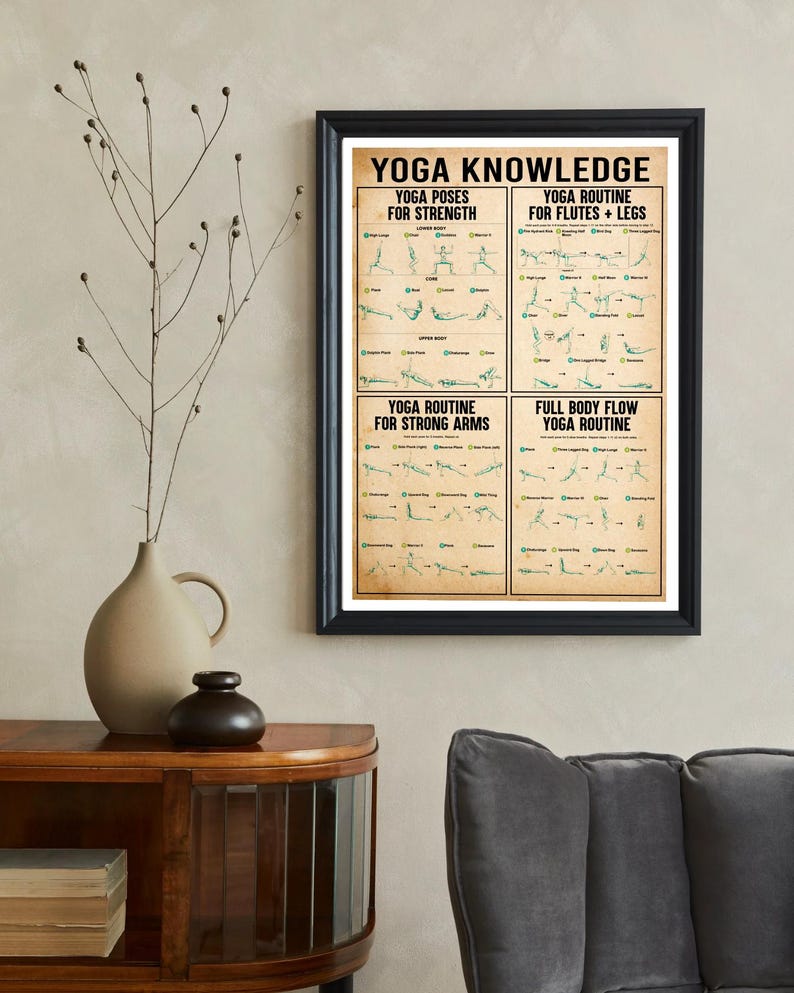 YOGA KNOWLEDGE
YOGA POSES
FOR STRENGTH
LOWER BODY
High Lunge Chair Goddess Warrior II
CORE
Plank Boat Locust Dolphin
UPPER BODY
Dolphin Plank Side Plank Chaturanga Crow
YOGA ROUTINE
FOR FLUTES + LEGS
Fire Hydrant Kick Kneeling Half Moon Bird Dog Three Legged Dog
High Lunge Warrior II Half Moon Warrior III
Chair Diver Standing Fold Locust
Bridge One Legged Bridge Savasana
YOGA ROUTINE
FOR STRONG ARMS
Hold each pose for 5 breaths.
Plank Side Plank (right) Reverse Plank Side Plank (left)
Chaturanga Upward Dog Downward Dog Wild Thing
Downward Dog Warrior II Plank Savasana
FULL BODY FLOW
YOGA ROUTINE
Plank Three Legged Dog High Lunge Warrior II
Reverse Warrior Warrior III Chair Standing Fold
Chaturanga Upward Dog Down Dog Savasana